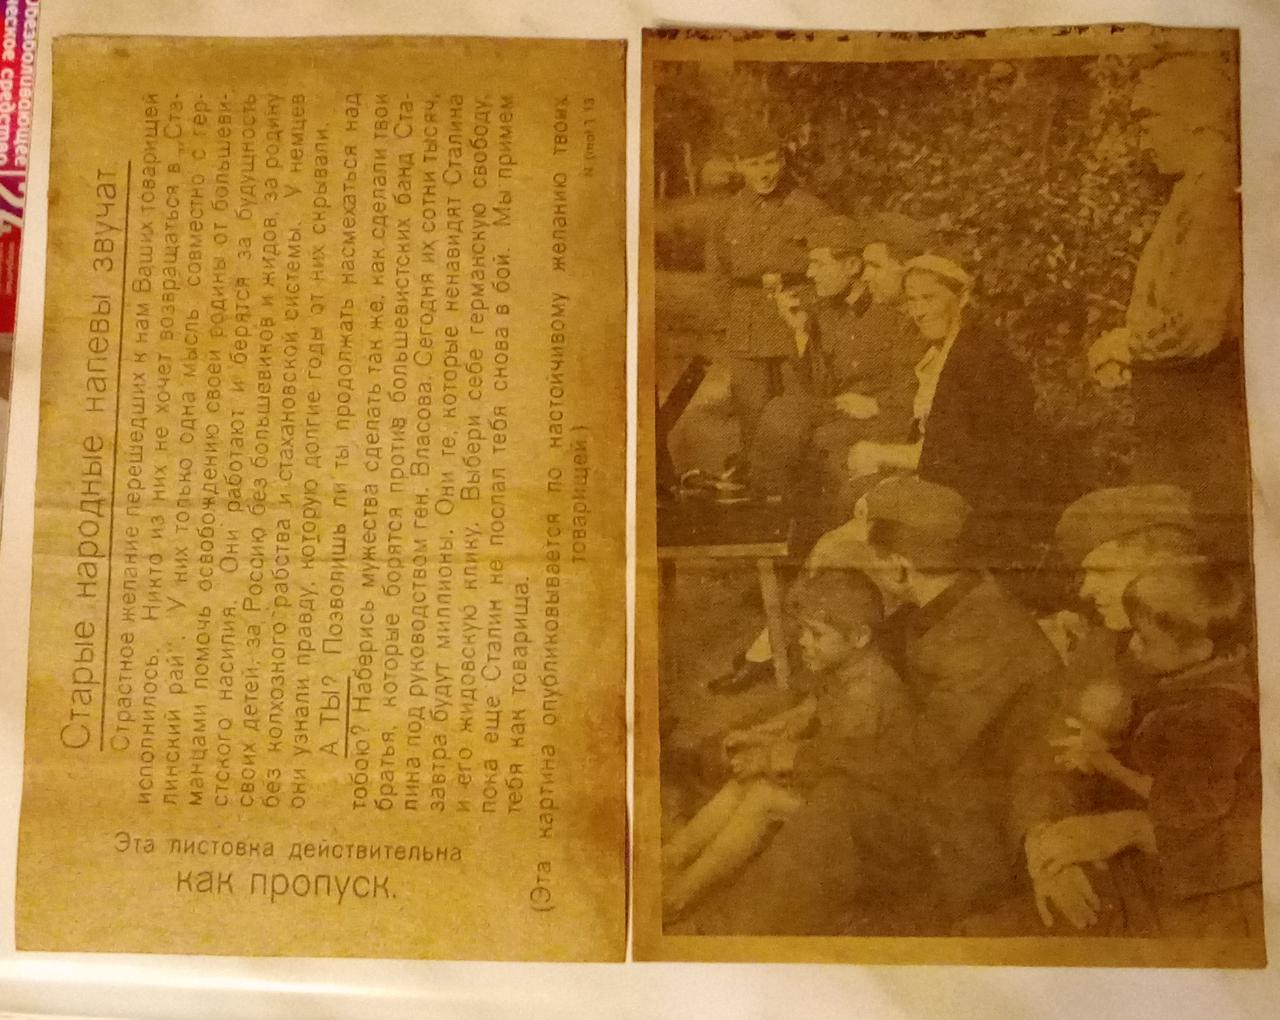 Старые народные напевы звучат.
Страстное желание перешедших к нам Ваших товарищей
исполнилось. Никто из них не хочет возвращаться в „Ста-
линский рай“. У них только одна мысль совместно с гер-
манцами помочь освобождению своей родины от большеви-
стского насилия. Они работают и берятся за будущность
своих детей, за Россию без большевиков и жидов, за родину
без колхозного рабства и стахановской системы. У немцев
они узнали правду, которую долгие годы от них скрывали.
А ТЫ? Позволишь ли ты продолжать насмехаться над
тобою? Наберись мужества сделать так же, как сделали твои
братья, которые борятся против большевистских банд Ста-
лина под руководством ген. Власова. Сегодня их сотни тысяч,
завтра будут миллионы. Они те, которые ненавидят Сталина
и его жидовскую клику. Выбери себе германскую свободу,
пока еще Сталин не послал тебя снова в бой. Мы примем
тебя как товарища.
(Эта картина опубликовывается по настойчивому желанию твоих
товарищей.)
Эта листовка действительна
как пропуск.
Обезболивающее
ческое средство
24